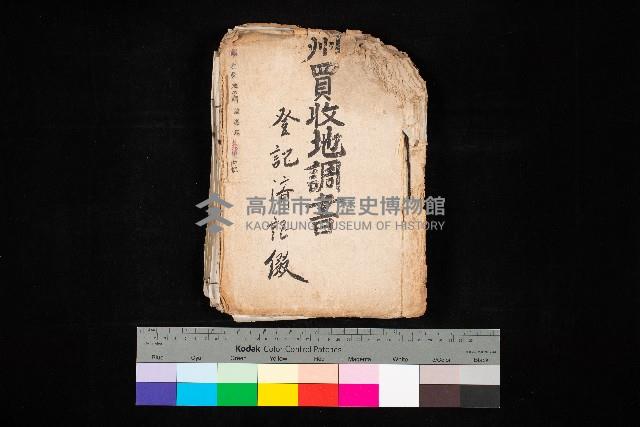 州買收地調書
登記済記綴
高雄市立歷史博物館
KAOHSIUNG MUSEUM OF HISTORY
Kodak Color Control Patches
Blue Cyan Green Yellow Red Magenta White 3/Color Black